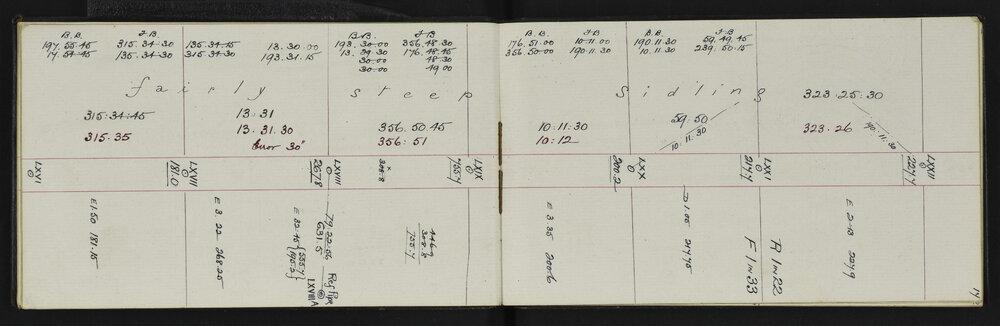 B.B. J.B.
197.55.45 315.34.30 135.34.15 13.30.00
17.54.45 135.34.30 315.34.30 193.31.15
B.B. J.B.
193.30.00 356.48.30
13.34.30 176.48.45
30.00 48.30
30.00 49.00
B.B. J.B. B.B. J.B.
176.51.00 10.11.00 190.11.30 59.49.45
356.50.00 190.11.30 10.11.30 239.50.15
fairly steep sidling
315:34:45
315.35
13:31
13.31.30
Error 30"
356.50.45
356:51
10:11:30
10:12
59.50
10.11.30
323.25:30
323.26
190.11.30
LXVI
LXVII
181.0
LXVIII
267.8
308.8
LXIX
755.7
LXX
200.2
LXXI
217.7
LXXII
227.7
E 1.50 181.15
E 3.22 268.25
E 32.45 {555.7} {195.2}
79.22.56
631.5
Ref Pipe
LXVIIIA
446.9
308.8
755.7
E 3.35 200.6
D 1.05 217.75
F 1 in 33
R 1 in 22
E 2.10 227.9
14